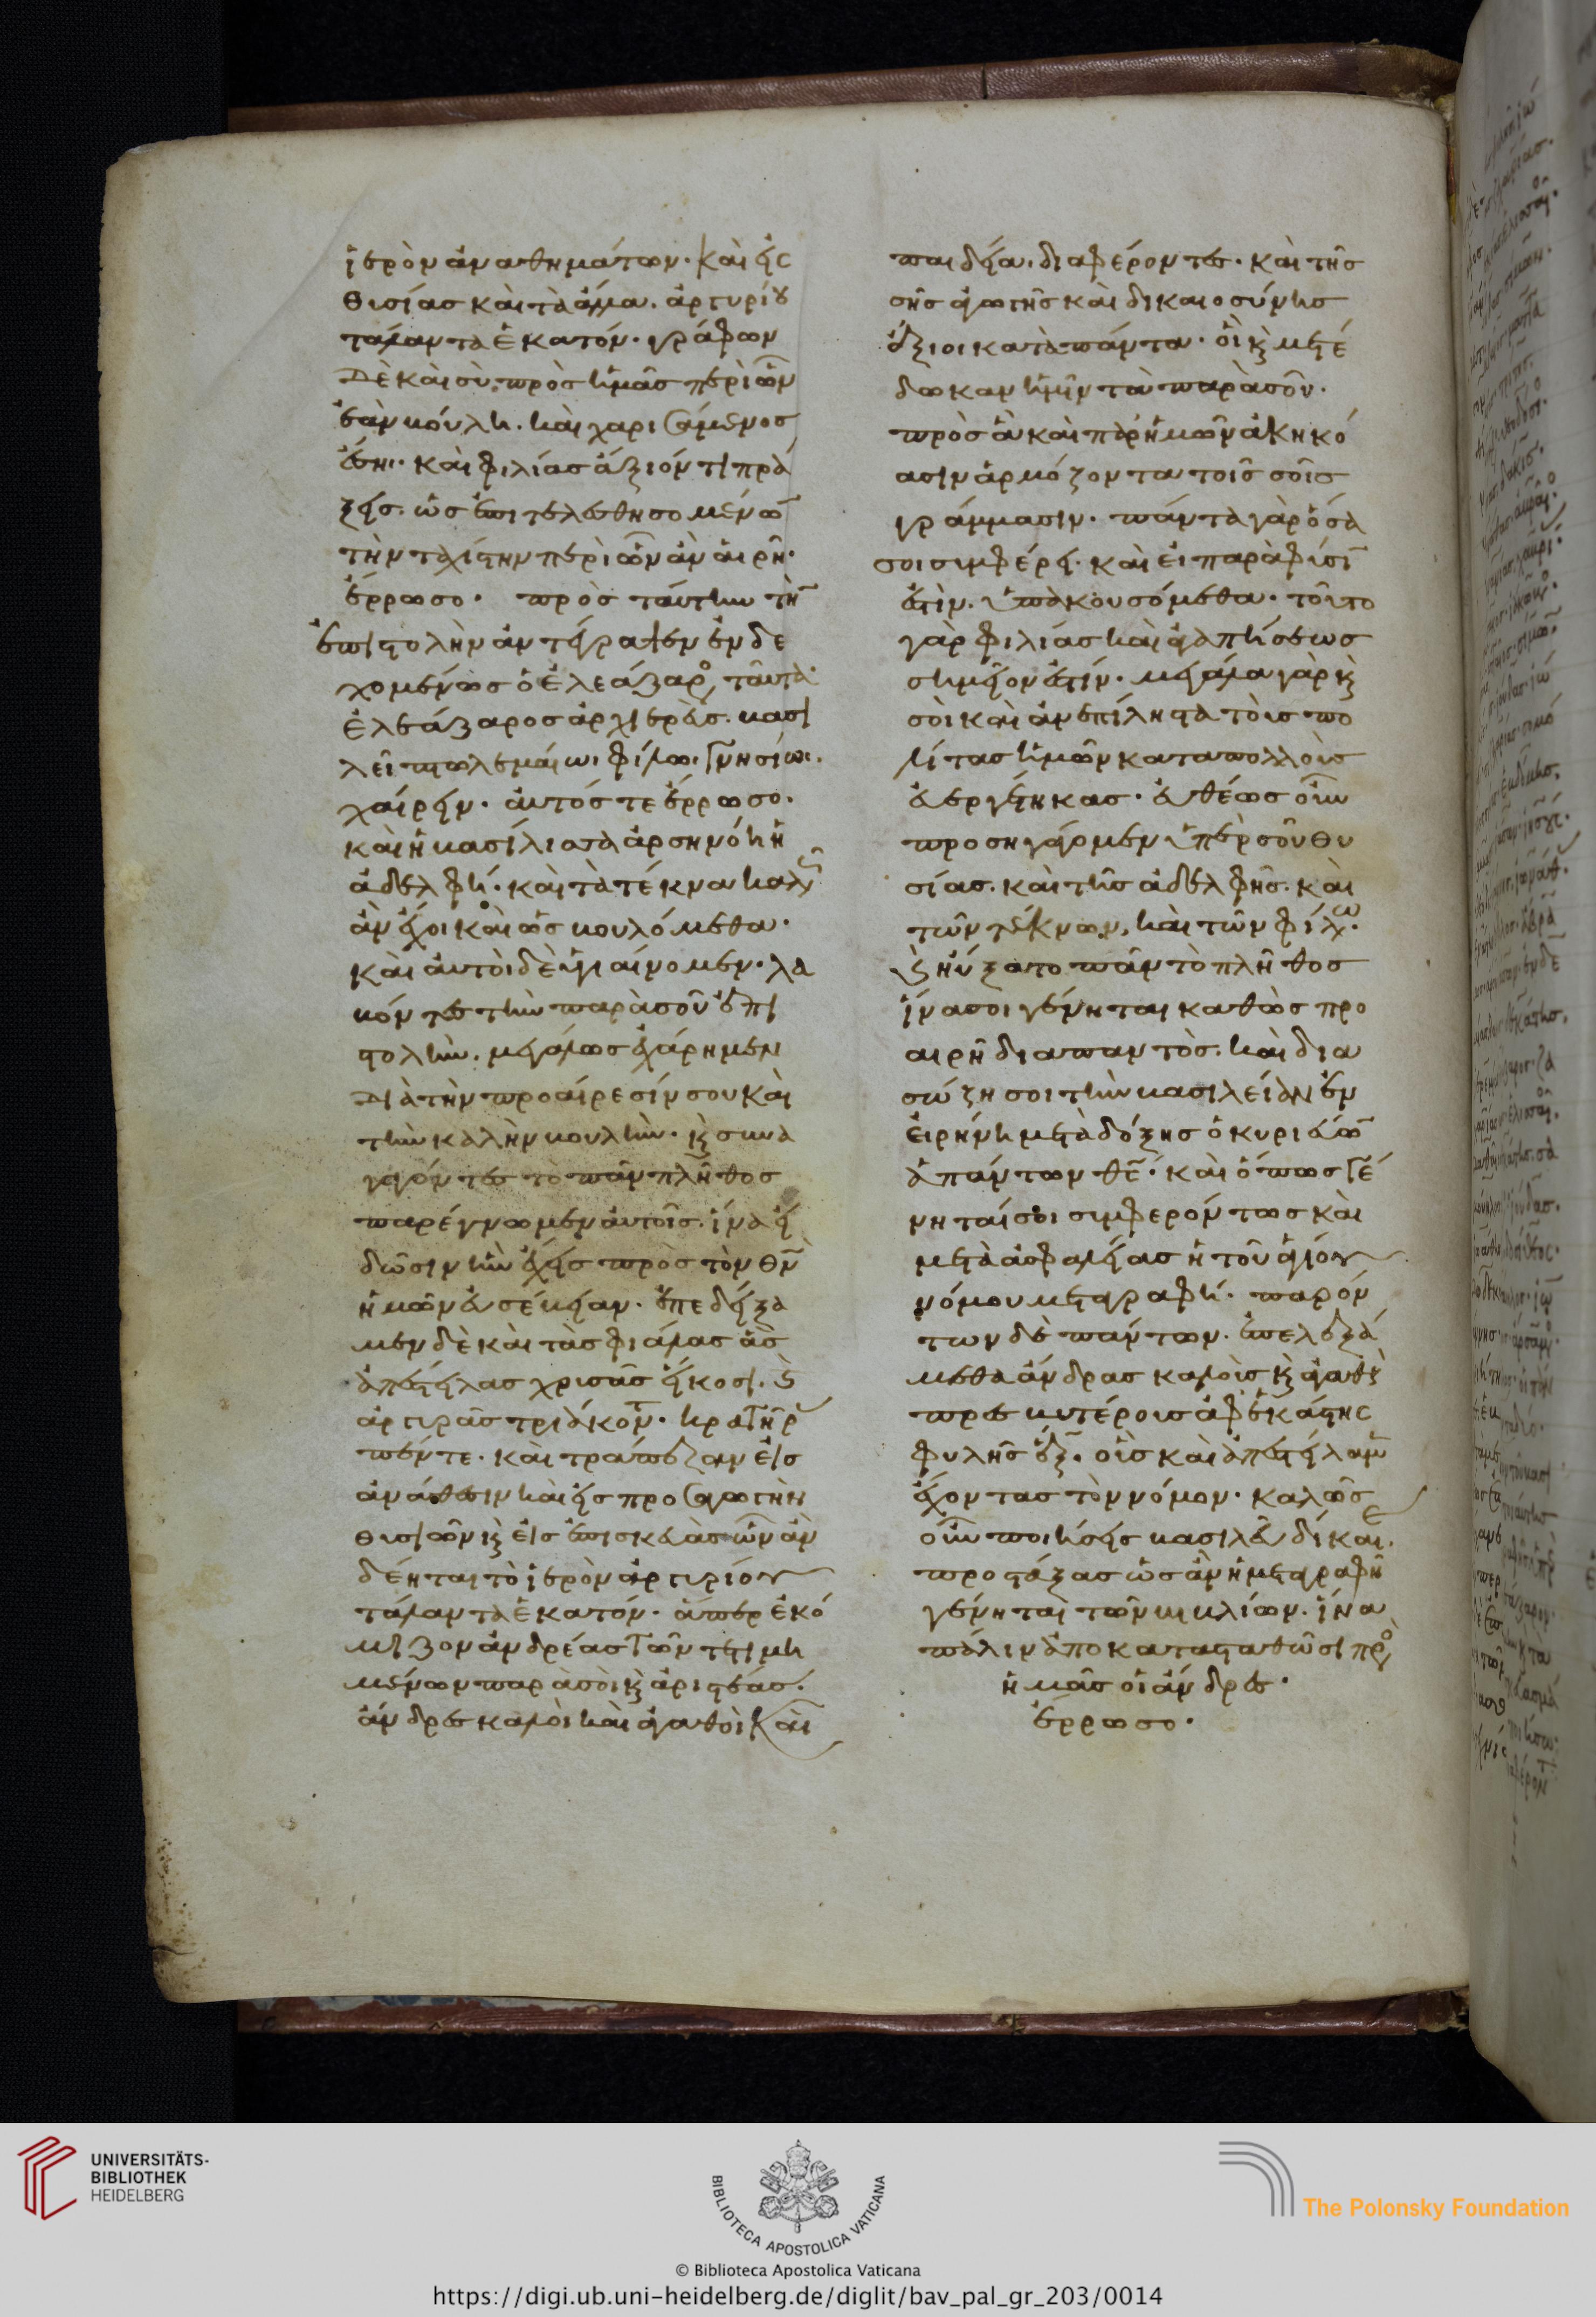 ἱερὸν ἀναθημάτων· καὶ εἰς
θυσίας καὶ τὰ ἄλλα. ἀργυρίου
τάλαντα ἑκατόν· γράφων
δὲ καὶ σὺ πρὸς ἡμᾶς περὶ ὧν
ἐὰν βούλη. κεχαρισμένος
ἔση· καὶ φιλίας ἄξιόν τι πρά
ξεις. ὡς ἐπιτελεσθησομένων
τὴν ταχίστην περὶ ὧν ἂν αἱρῆ·
ἔρρωσο· πρὸς ταύτην τὴν
ἐπιστολὴν ἀντέγραψεν ἐνδε
χομένως ὁ ἐλεάζαρος ταῦτα·
ἐλεάζαρος ἀρχιερεὺς. βασι
λεῖ πτολεμαίωι φίλωι γνησίωι.
χαίρειν· αὐτός τε ἔρρωσο·
καὶ ἡ βασίλισσα ἀρσηνόη ἡ
ἀδελφή· καὶ τὰ τέκνα καλῶς
ἂν ἔχοι καὶ ὡς βουλόμεθα·
καὶ αὐτοὶ δὲ ὑγιαίνομεν· λα
βόντες τὴν παρὰ σοῦ ἐπι
στολὴν. μεγάλως ἐχάρημεν
διὰ τὴν προαίρεσίν σου καὶ
τὴν καλὴν βουλὴν· κ συνα
γαγόντες τὸ πᾶν πλῆθος
παρέγνωμεν αὐτοῖς. ἵνα εἰ
δῶσιν ἣν ἔχεις πρὸς τὸν θν
ἡμῶν εὐσέβειαν· ἐπεδείξα
μεν δὲ καὶ τὰς φιάλας ἃς
ἀπέστειλας χρυσᾶς εἴκοσι. κ
ἀργυρᾶς τριάκοντ· κρατῆρ
πέντε· καὶ τράπεζαν εἰς
ἀνάθεσιν καὶ εἰς προσαγωγὴν
θυσιῶν κ εἰς ἐπισκευὰς ὧν ἂν
δέηται τὸ ἱερὸν ἀργυρίου
τάλαντα ἑκατόν· ἅπερ ἐκό
μιζον ἀνδρέας τῶν τετιμη
μένων παρὰ σοὶ κ ἀριστέας·
ἄνδρες καλοὶ καὶ ἀγαθοὶ καὶ
παιδεία. διαφέροντες· καὶ τῆς
σῆς ἀγωγῆς καὶ δικαιοσύνης
ἄξιοι κατὰ πάντα· οἳ κ μετέ
δωκαν ἡμῖν τὰ παρὰ σοῦ·
πρὸς ἃ καὶ παρ ἡμῶν ἀκηκό
ασιν ἁρμόζοντα τοῖς σοῖς
γράμμασιν· πάντα γὰρ ὅσα
σοι συμφέρει· καὶ εἰ παρὰ φύσιν
ἐστὶν. ὑπακουσόμεθα· τοῦτο
γὰρ φιλίας καὶ ἀγαπήσεως
σημεῖον ἐστίν· μεγάλα γὰρ κ
σὺ καὶ ἀνεπίληστα τοὺς πο
λίτας ἡμῶν κατὰ πολλοὺς
εὐεργέτηκας· εὐθέως οὖν
προσηγάγομεν ὑπὲρ σοῦ θυ
σίας. καὶ τῆς ἀδελφῆς· καὶ
τῶν τέκνων, καὶ τῶν φίλω·
κ ηὔξατο πᾶν τὸ πλῆθος
ἵνα σοι γένηται καθὼς προ
αιρῆ διαπαντὸς. καὶ δια
σώζη σοι τὴν βασιλείαν ἐν
εἰρήνη μετὰ δόξης ὁ κυριεύων
ἁπάντων θς· καὶ ὅπως γέ
νηταί σοι συμφερόντως καὶ
μετὰ ἀσφαλείας ἡ τοῦ ἁγίου
νόμου μεταγραφή· παρόν
των δὲ πάντων. ἐπελεξά
μεθα ἄνδρας καλοὺς κ ἀγαθοὺς
πρεσβυτέρους ἀφ ἑκάστης
φυλῆς ἕξ· οὓς καὶ ἀπεστείλαμεν
ἔχοντας τὸν νόμον· καλῶς
οὖν ποιήσεις βασιλεῦ δίκαιε.
προστάξας ὡς ἂν ἡ μεταγραφὴ
γένηται τῶν βιβλίων. ἵνα
πάλιν ἀποκατασταθῶσι πρὸς
ἡμᾶς οἱ ἄνδρες·
ἔρρωσο·
UNIVERSITÄTS-
BIBLIOTHEK
HEIDELBERG
BIBLIOTECA APOSTOLICA VATICANA
The Polonsky Foundation
© Biblioteca Apostolica Vaticana
https://digi.ub.uni-heidelberg.de/diglit/bav_pal_gr_203/0014